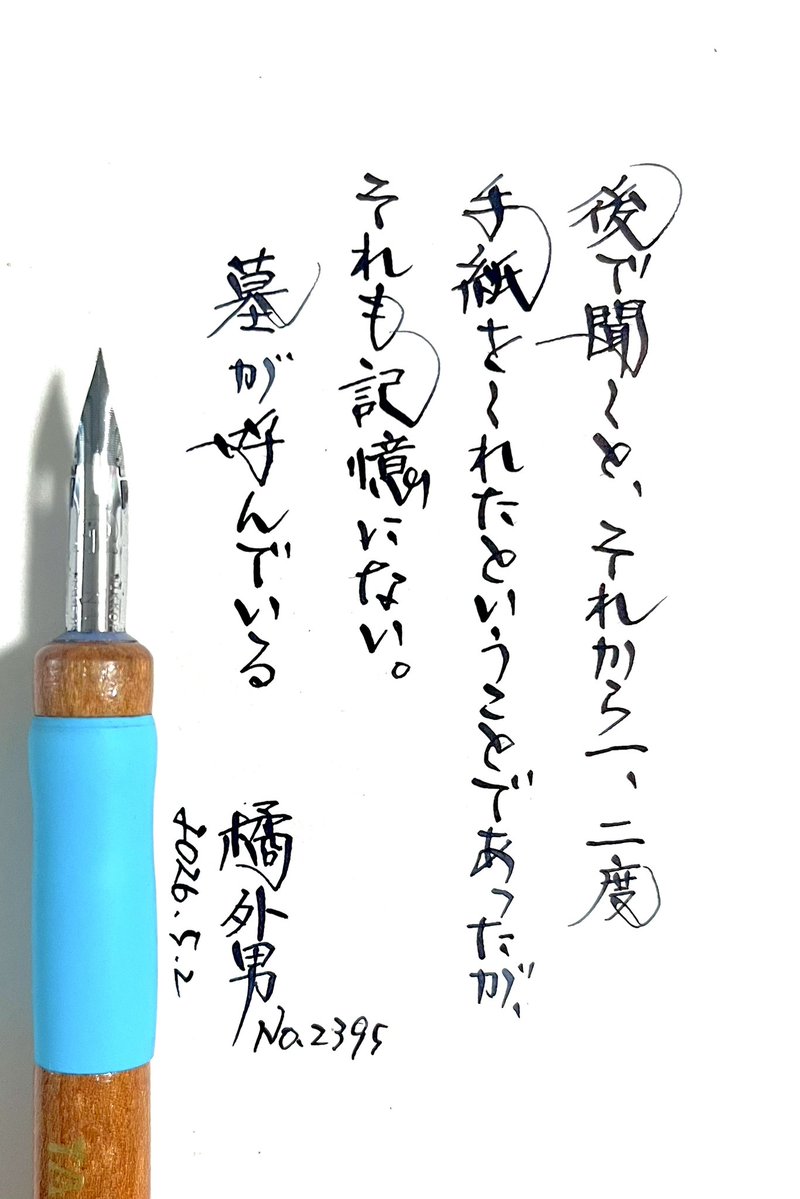 後で聞くと、それから一、二度
手紙をくれたということであったが、
それも記憶にない。
墓が呼んでいる
橘外男
No.2395
2026.5.2